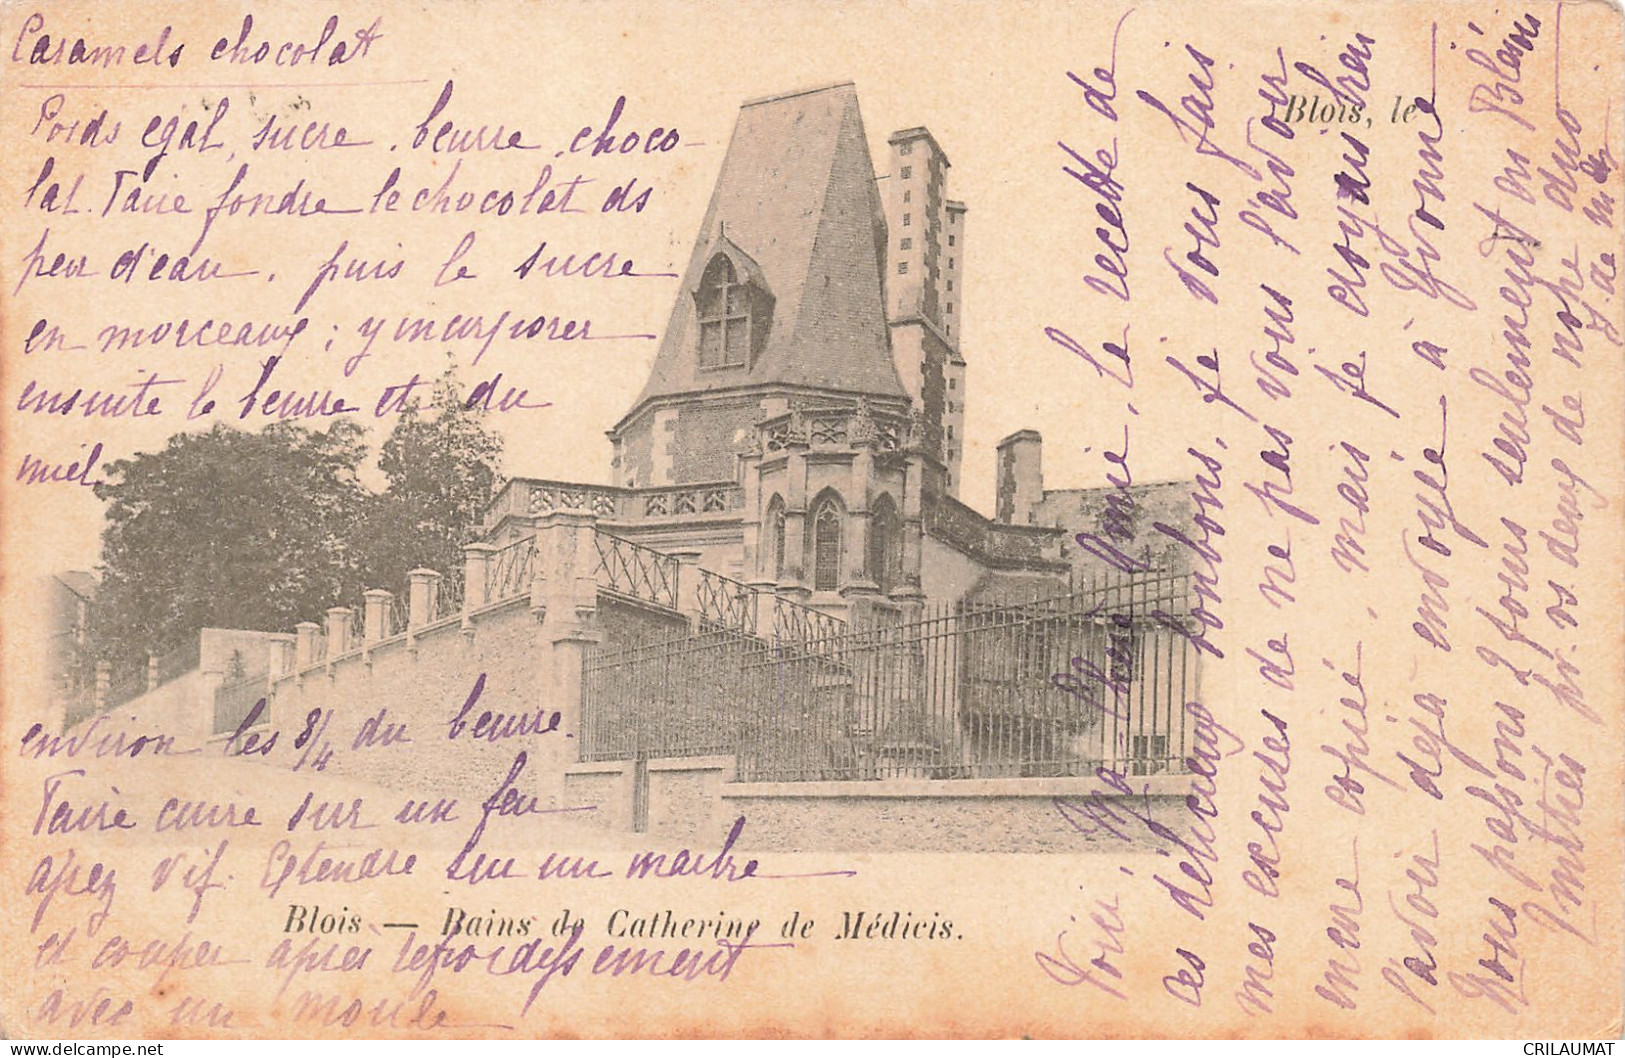 Caramels chocolat
Poids égal, sucre, beurre, choco-
lat. Faire fondre le chocolat ds
peu d'eau, puis le sucre
en morceaux ; y incorporer
ensuite le beurre et du
miel
environ les 3/4 du beurre.
Faire cuire sur un feu
assez vif. Etendre sur un marbre
et couper après refroidissement
avec un moule
Blois — Bains de Catherine de Médicis.
Blois, le
Voici, ma chère amie, la recette de
ces délicieux bonbons, je vous fais
mes excuses de ne pas vous l'avoir
encore copiée, mais je croyais bien
l'avoir déjà envoyée à Yvonne
Nous passons 2 jours seulement en Blésois
Amitiés pr. vs deux de notre duo
Y. de
CRILAUMAT